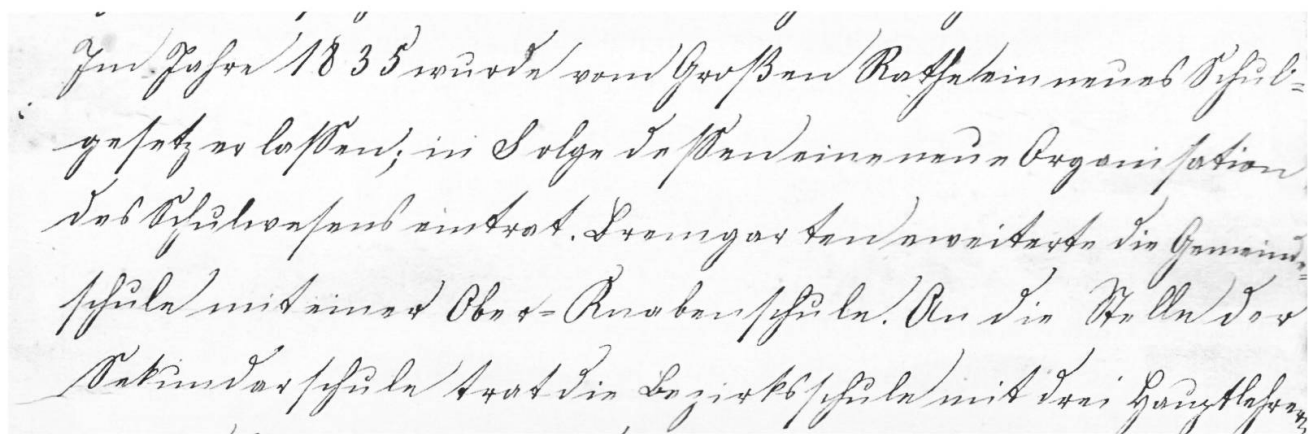 Im Jahre 1835 wurde vom Großen Rathe ein neues Schul=
gesetz erlassen; in Folge dessen eine neue Organisation
des Schulwesens eintrat. Bremgarten eweiterte die Gemeinde=
schule mit einer Ober=Knabenschule. An die Stelle der
Sekundarschule trat die Bezirksschule mit drei Hauptlehrern